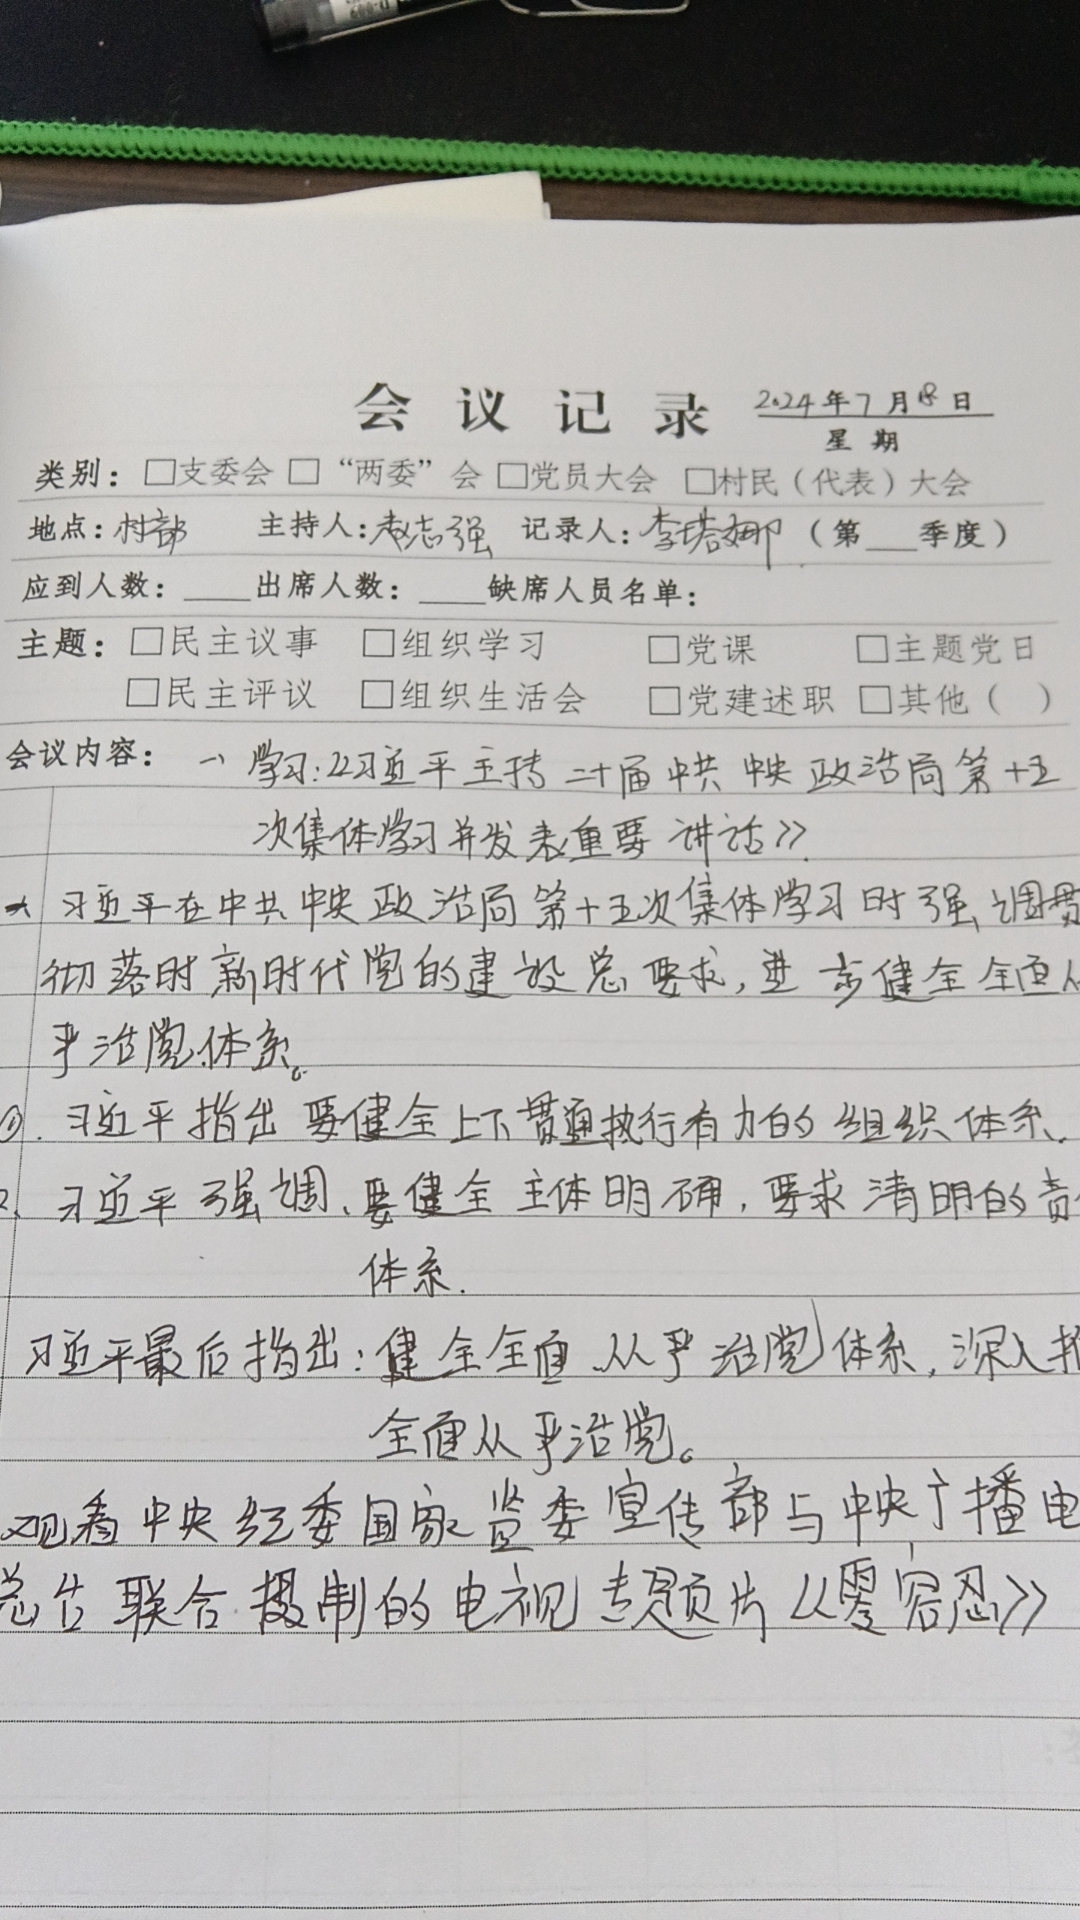 会议记录 2024年7月18日
星期
类别：□支委会 □“两委”会 □党员大会 □村民（代表）大会
地点：村部 主持人：志强 记录人：李塔娜（第___季度）
应到人数：____出席人数：____缺席人员名单：
主题：□民主议事 □组织学习 □党课 □主题党日
□民主评议 □组织生活会 □党建述职 □其他（ ）
会议内容：一、学习：《习近平主持二十届中共中央政治局第十五
次集体学习并发表重要讲话》
习近平在中共中央政治局第十五次集体学习时强调贯
彻落时新时代党的建设总要求，进步健全全面从
严治党体系。
①. 习近平指出要健全上下贯通执行有力的组织体系.
2. 习近平强调、要健全主体明确，要求清明的责
体系.
习近平最后指出：健全全面从严治党体系，深入推
全面从严治党。
观看中央纪委国家监委宣传部与中央广播电
总台联合摄制的电视专题片《零容忍》